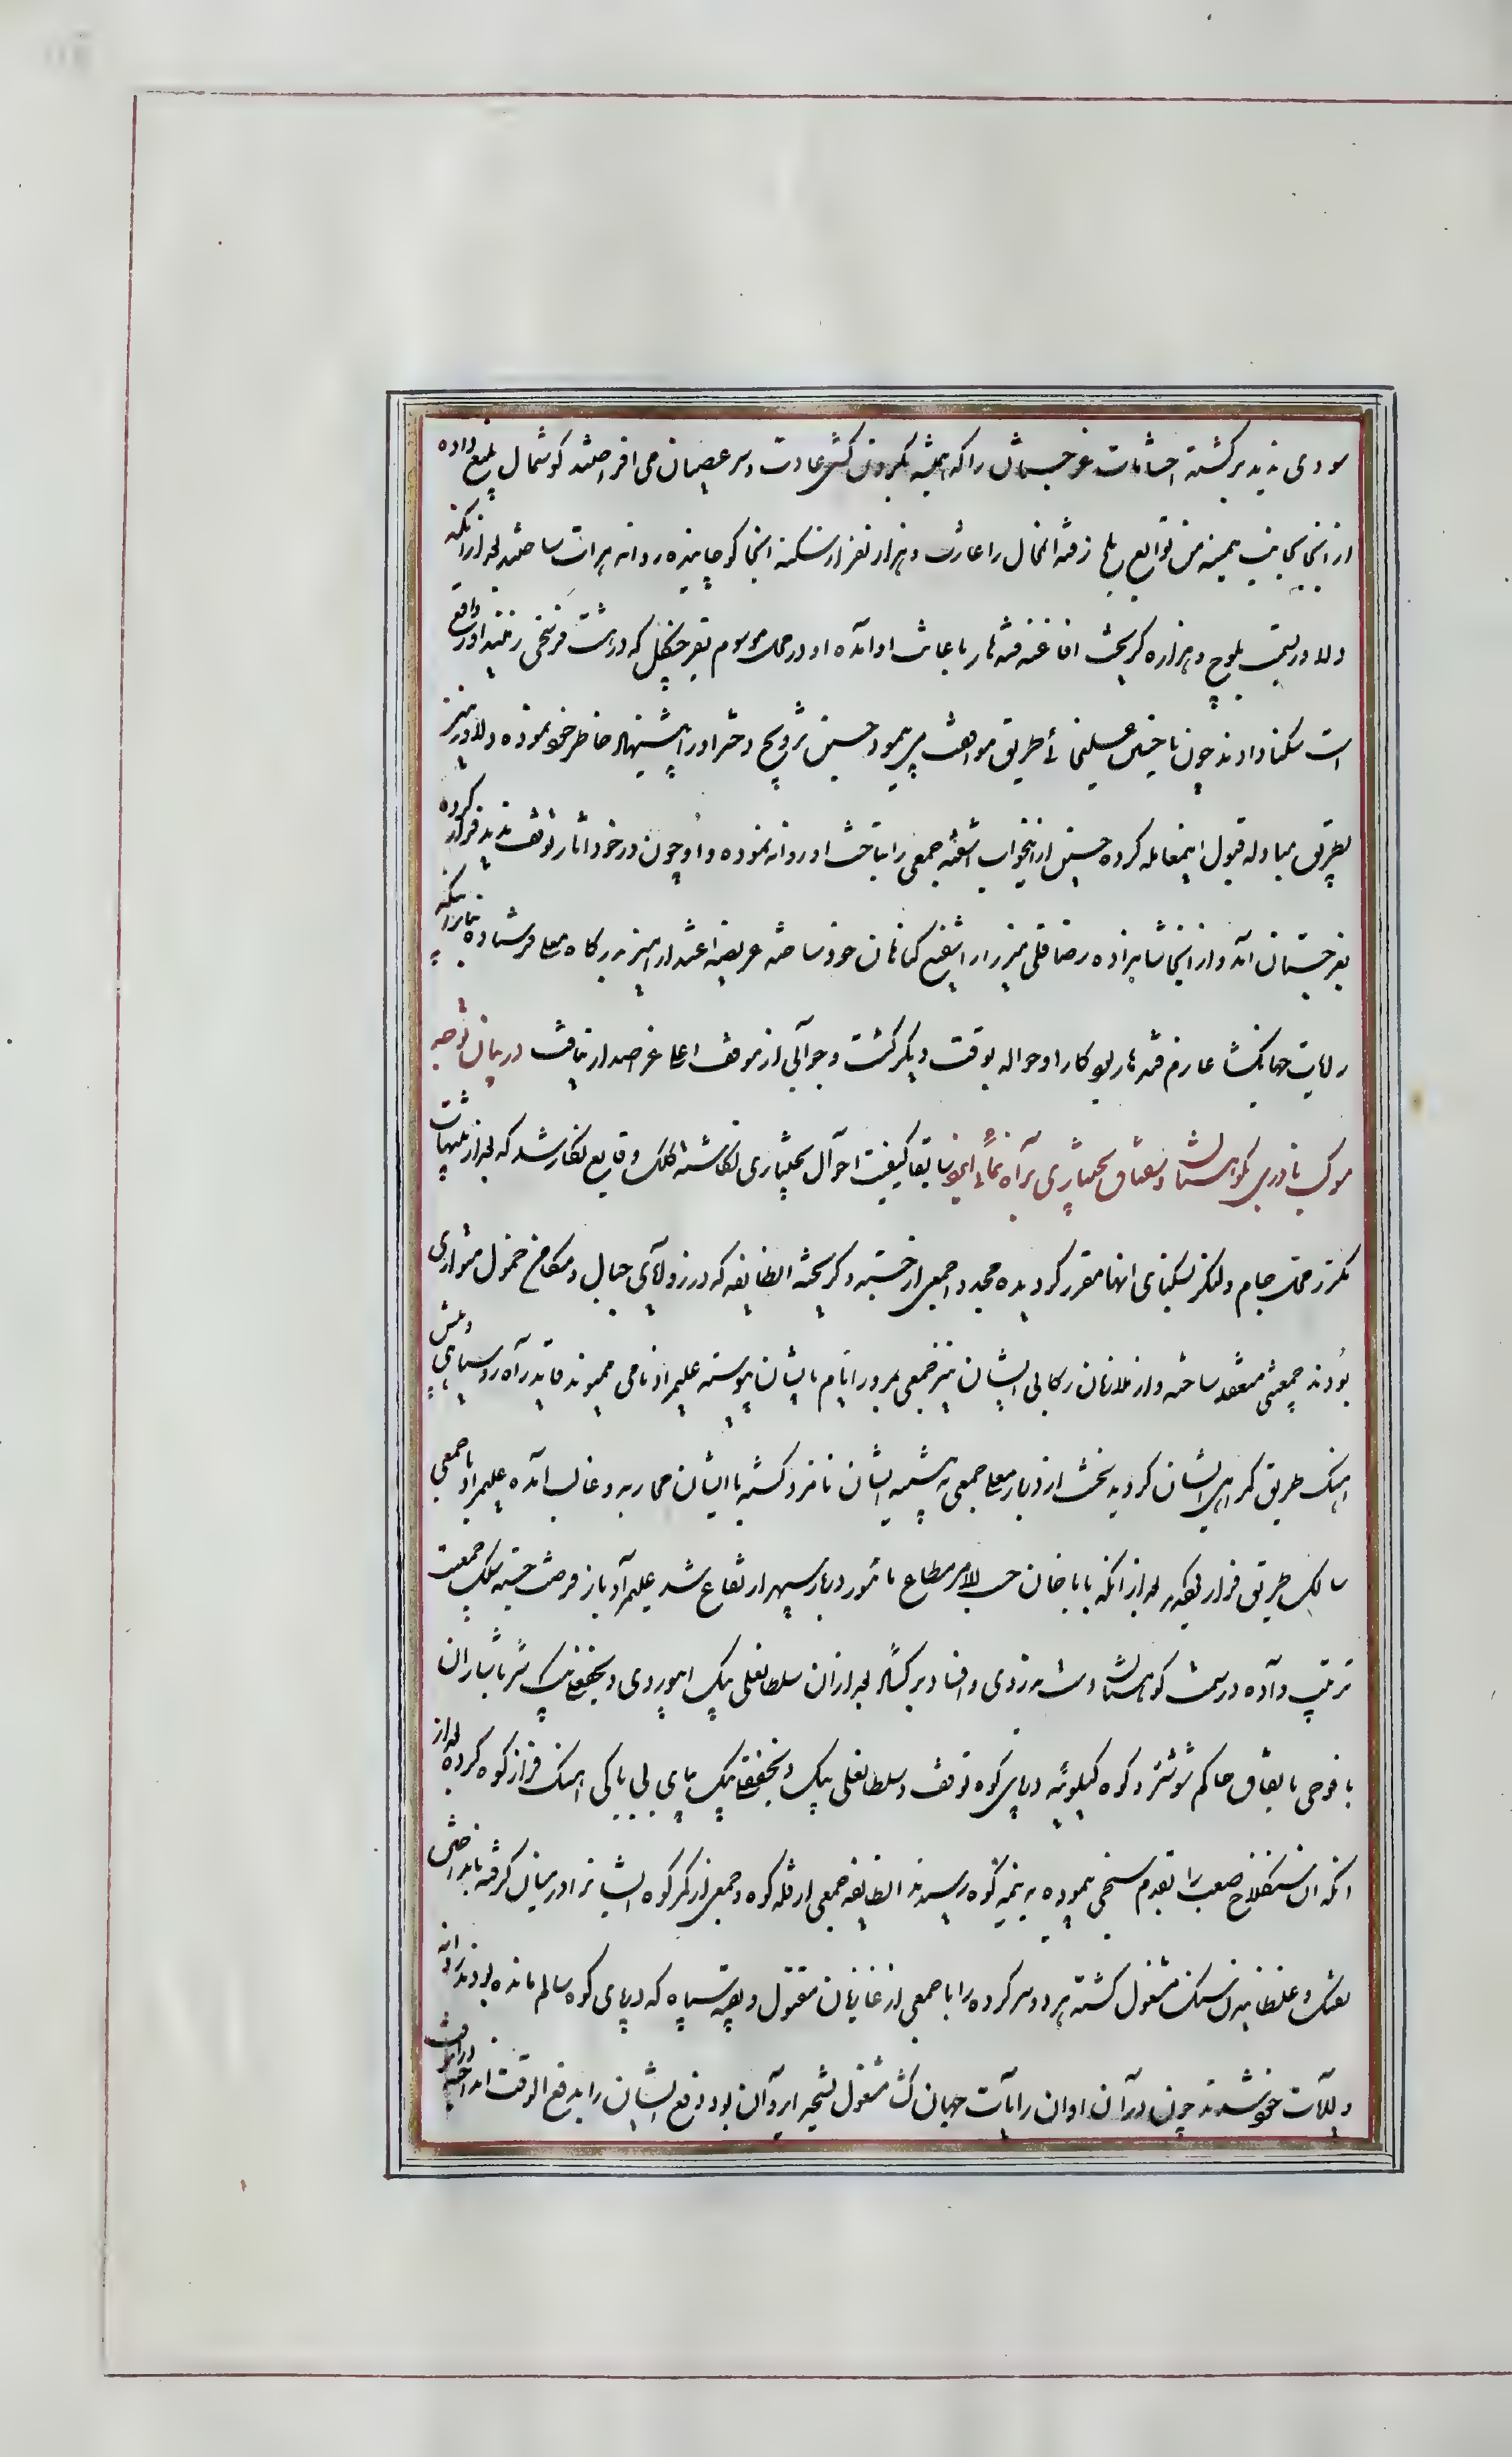 سودی ندید برگشته احشامات غرجستان را که همیشه بگردن کشی عادت و سر عصیان می افراختند گوشمال بلیغ داده
از آنجا بجانب میمنه من توابع بلخ رفته آنمحال را غارت و هزار نفر از سکنه آنجا کوچانیده روانه هرات ساختند بعد از آنکه
دلاور بسمت بلوچ و هزاره گریخت افاغنه قندهار باعانت او آمده او در محل موسوم بقرجنگل که در هشت فرسخی زمینداور واقع
است سکنا دادند چون با حسین غلیجائی طریق موافقت می پیمود حسین تزویج دختر او را پیشنهاد خاطر خود نموده دلاور نیز
بطریق مبادله قبول اینمعامله کرده حسین از اینجواب آشفته جمعی را بتاخت او روانه نموده و او چون در خود آثار توقف ندید فرار کرده
بغرجستان آمد و از آنجا شاهزاده رضا قلی میرزا را شفیع گناهان خود ساخته عریضه اعتذار آمیز بدرگاه معلی فرستاده بنابر آنکه
رایات جهانگشا عازم قندهار بود کار او حواله بوقت دیگر گشت و جوابی از موقف اعلی عرض صدور نیافت در بیان توجه
موکب نادری بکوهستان و شقاق بختیاری براه نمائی سابقا کیفیت احوال بختیاری نگاشته کلک وقایع نگار شد که بعد از تنبیهات
مکرر محل جام و لنگر بسکنای آنها مقرر گردیده مجددا جمعی از خسته و گریخته آنطایفه که در زوایای جبال و مکامن خمول متواری
بودند جمعیتی منعقد ساخته و از ملازمان رکابی ایشان نیز جمعی بمرور ایام بایشان پیوسته علیمراد نامی ممیوند قاید راه روسیاهی و پیش
آهنگ طریق گمراهی ایشان گردید نخست از دربار معلی جمعی به تنبیه ایشان نامزد گشته با ایشان محاربه و غالب آمده علیمراد با جمعی
سالک طریق فرار گردید بعد از آنکه باباخان حسب الامر مطاع مأمور دربار سپهر ارتفاع شد علیمراد باز فرصت جسته سلک جمعیت
ترتیب داده در سمت کوهستان دست بدزدی و افساد برگشاد بعد از آن سلطانعلی بیک ابیوردی و نجفقلی بیک سرتاشاران
با فوجی باتفاق حاکم شوشتر و کوه گیلویه در پای کوه توقف و سلطانعلی بیک و نجفقلی بیک بپای بی باکی آهنگ فراز کوه کرده بعد از
آنکه آن سنگلاخ صعب را بقدم سختی پیموده به نیمه کوه رسیدند آنطایفه جمعی از قله کوه و جمعی از کمر کوه ایشانرا در میان گرفته بانداختن
تفنگ و غلطانیدن سنگ مشغول گشته هر دو سرکرده را با جمعی از غازیان مقتول و بقیه سپاه که در پای کوه سالم مانده بودند روانه
ولایات خود شدند چون در آن اوان رایات جهان گشا مشغول تسخیر ایروان بود دفع ایشان را بدفع الوقت انداخته در آنوقت